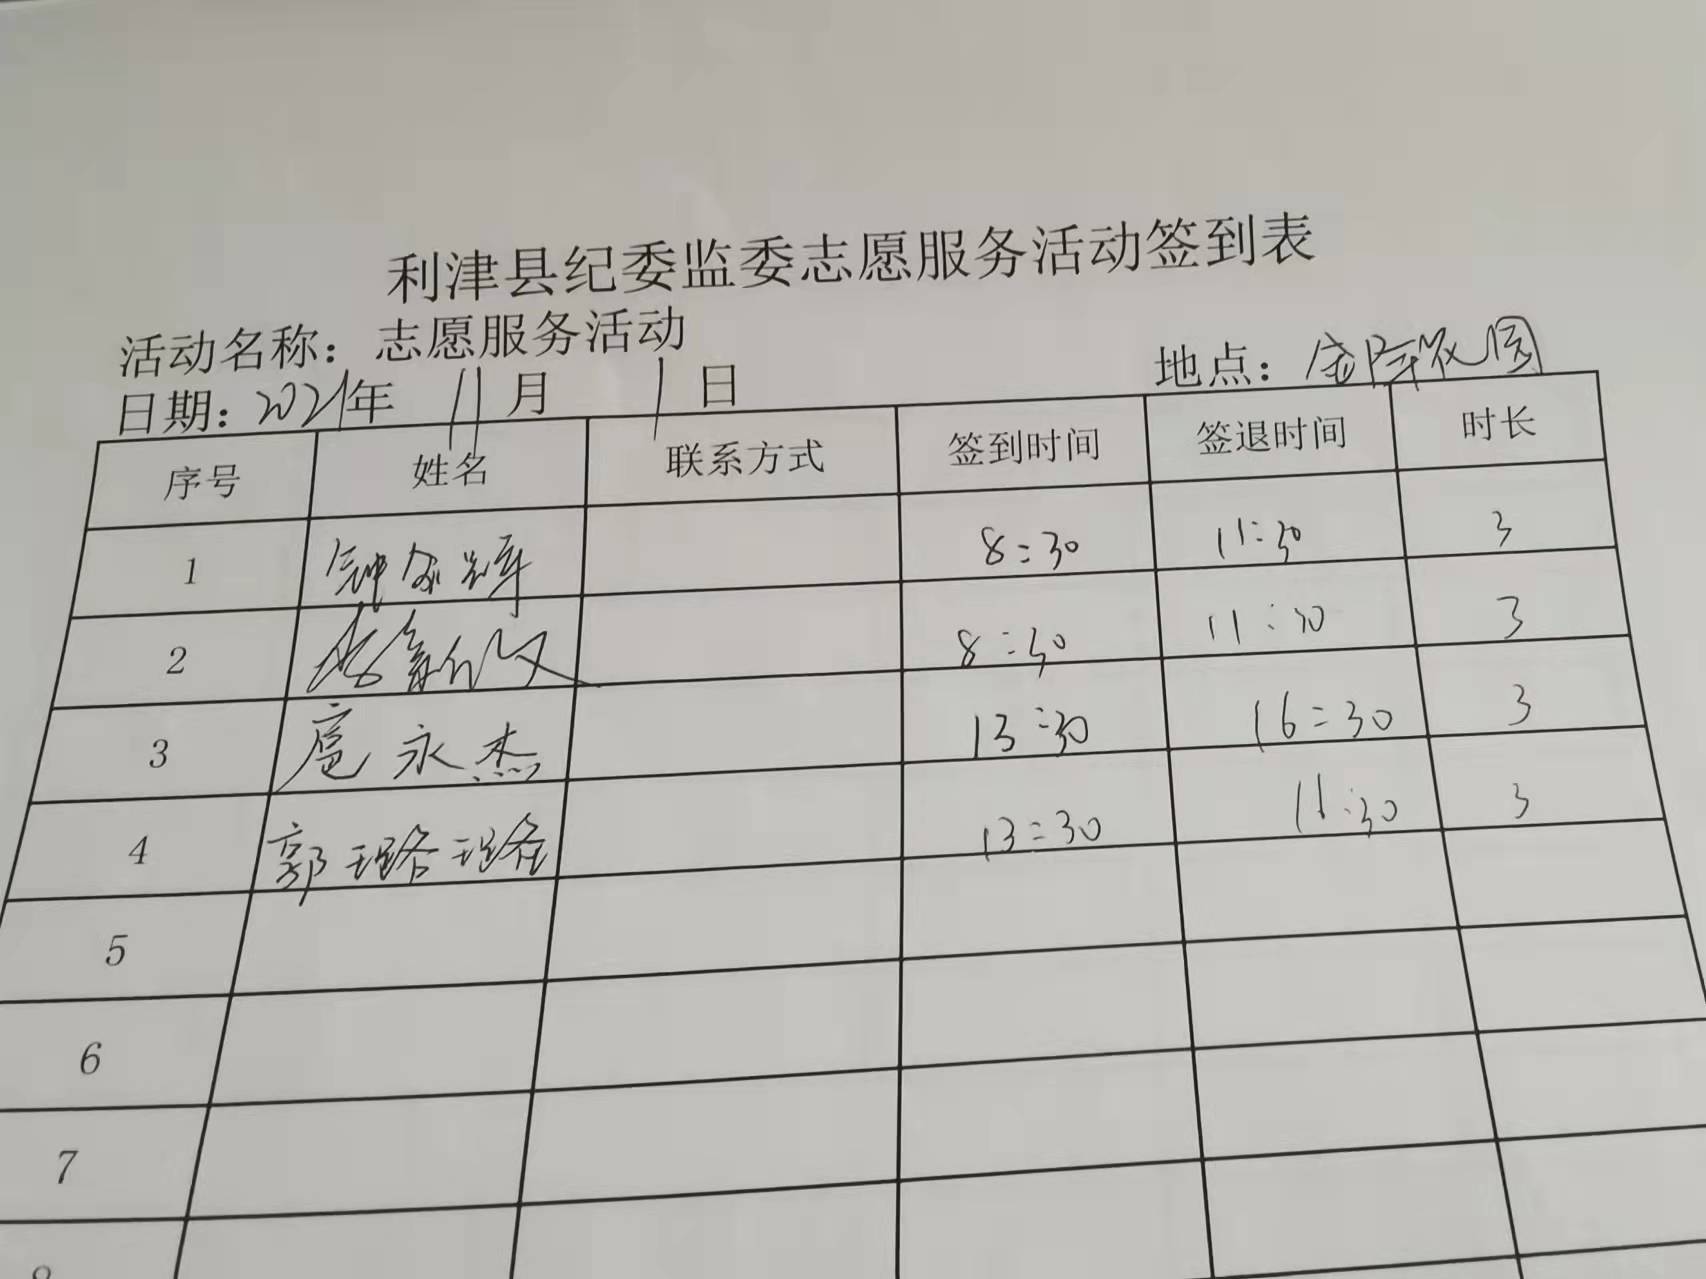 利津县纪委监委志愿服务活动签到表
活动名称：志愿服务活动
日期：2021年 11月 1日 地点：家园
序号 姓名 联系方式 签到时间 签退时间 时长
1 钟 8:30 11:30 3
2 8:30 11:30 3
3 扈永杰 13:30 16:30 3
4 郭璐璐 13:30 11:30 3
5
6
7
8